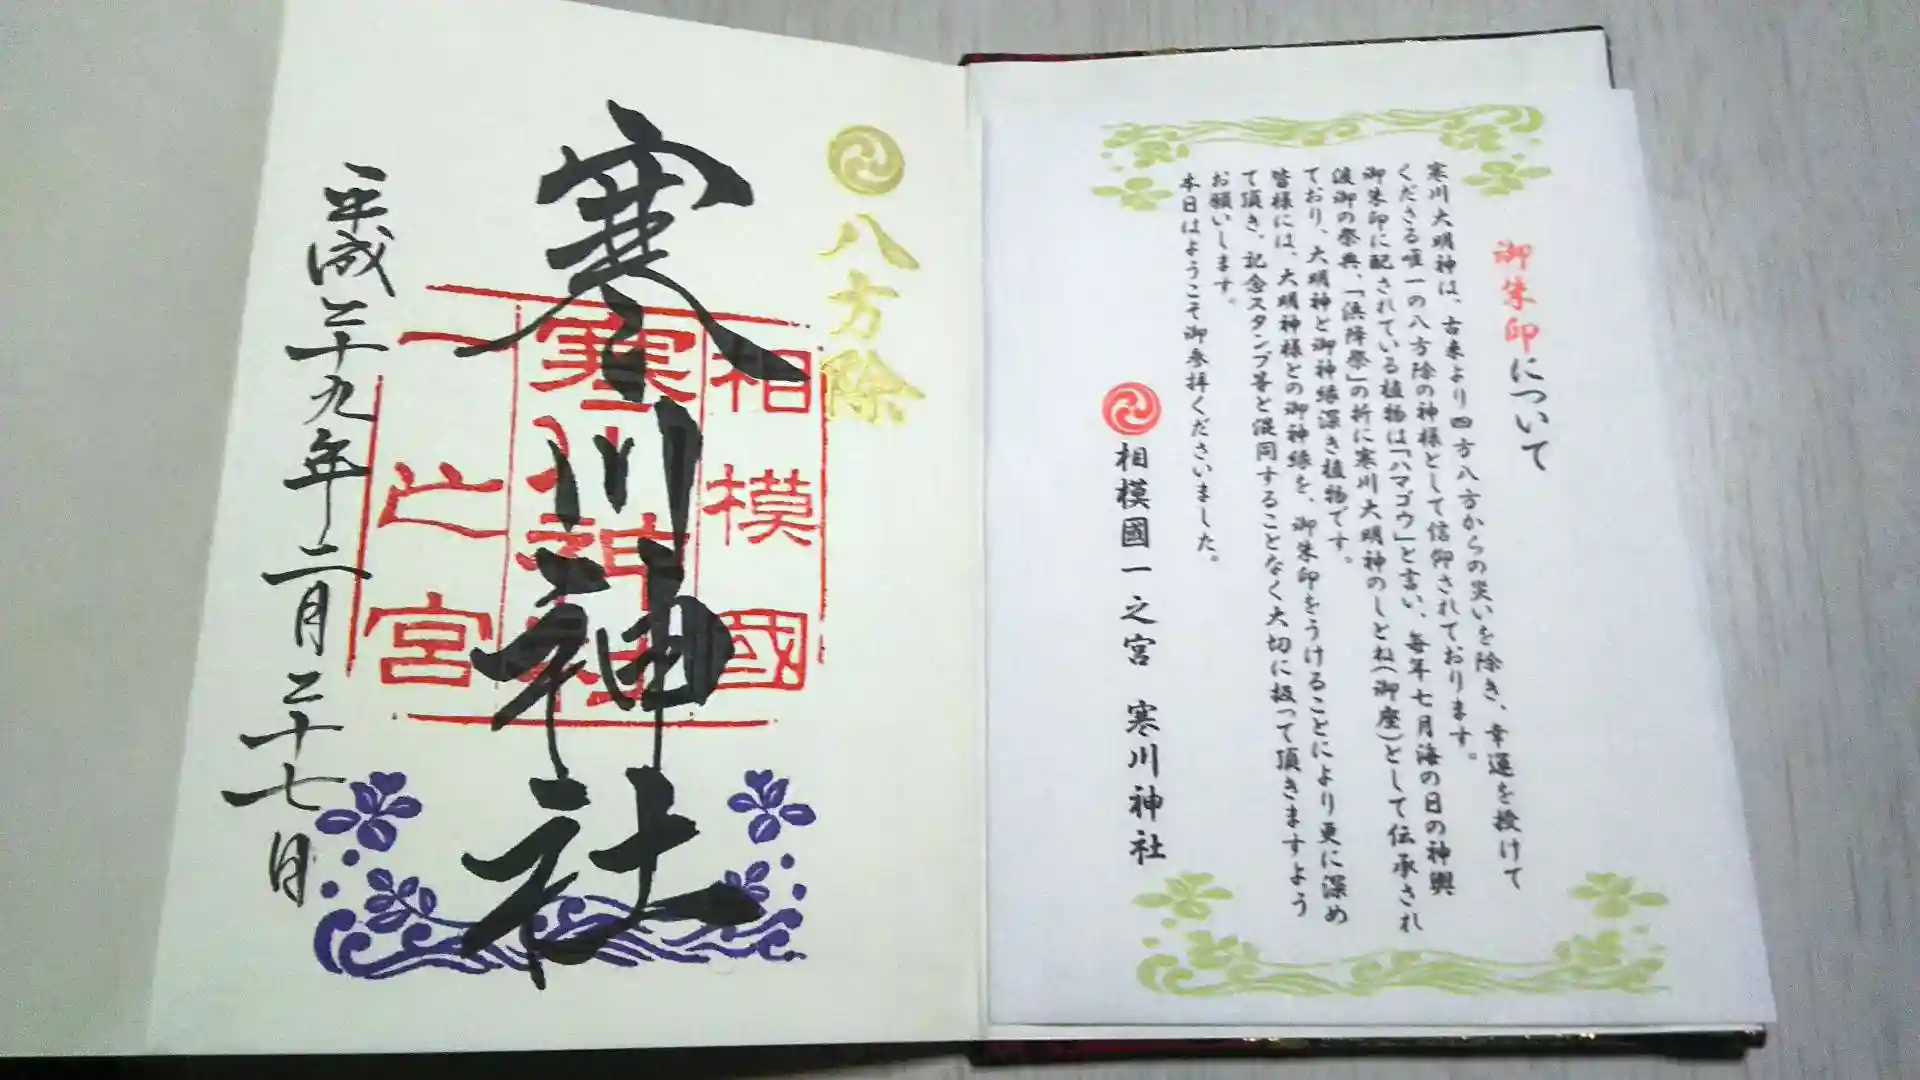 御朱印について
寒川大明神は、古来より四方八方からの災いを除き、幸運を授けて
くださる唯一の八方除の神様として信仰されております。
御朱印に配されている植物は「ハマゴウ」と言い、毎年七月海の日の神輿
渡御の祭典、「浜降祭」の折に寒川大明神のしとね(御座)として伝承され
ており、大明神と御神縁深き植物です。
皆様には、大明神様との御神縁を、御朱印をうけることにより更に深め
て頂き、記念スタンプ等と混同することなく大切に扱って頂きますよう
お願いします。
本日はようこそ御参拝くださいました。
相模國一之宮 寒川神社
八方除
相模國
寒川神社
一之宮
寒川神社
平成二十九年二月二十七日